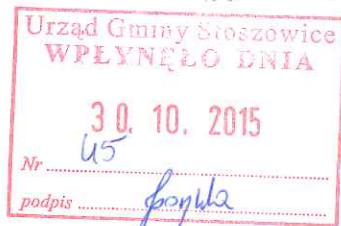 Urząd Gminy Stoszowice
WPŁYNĘŁO DNIA
30. 10. 2015
Nr 45
podpis